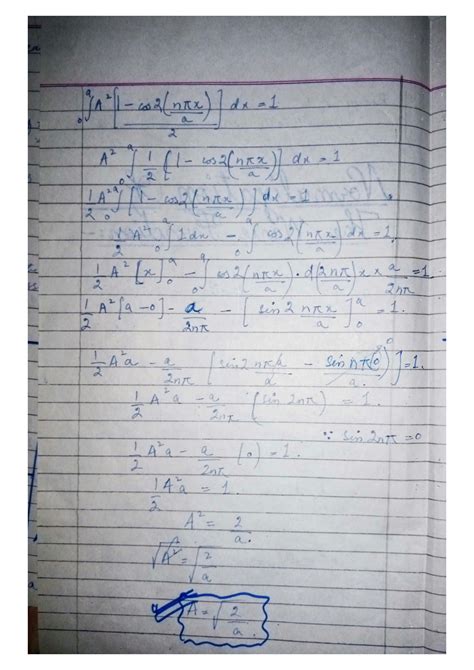 ₀∫ᵃ A² [1 - cos2(nπx/a) / 2] dx = 1
A² ₀∫ᵃ 1/2 [1 - cos2(nπx/a)] dx = 1
1/2 A² ₀∫ᵃ [1 - cos2(nπx/a)] dx = 1
1/2 A² ₀∫ᵃ 1dx - ₀∫ᵃ cos2(nπx/a) dx = 1
1/2 A² [x]₀ᵃ - ₀∫ᵃ cos2(nπx/a) · d(2nπ/a)x × a/2nπ = 1
1/2 A² [a - 0] - a/2nπ - [sin2 nπx/a]₀ᵃ = 1.
1/2 A²a - a/2nπ [sin2nπa/a - sin nπ(0)/a.] = 1.
1/2 A²a - a/2nπ (sin 2nπ) = 1.
∵ sin 2nπ = 0
1/2 A²a - a/2nπ (0) = 1.
1/2 A²a = 1.
A² = 2/a.
√A² = √2/a
A = √2/a.